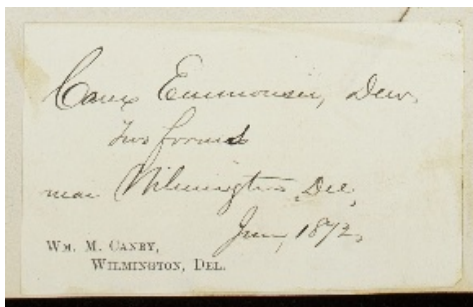 Carex Emmonsii, Dew.
two forms
near Wilmington, Del.
June, 1872,
WM. M. CANBY,
WILMINGTON, DEL.